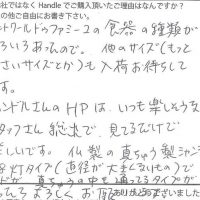 社ではなく Handle でご購入頂いたご理由はなんですか?
の他ご自由にお書き下さい。
トワールドゥファミーユの食器の種類が
ろいろあったので。他のサイズ(もっと
さいサイズとか)も入荷お待ちして
す。
ンドルさんのHPは、いつも楽しそうな
タッフさん総出で、見てるだけで
しいです。仏製の真ちゅう製シャン
灯タイプ(直径が大きくないもので
が、真ちゅうの中を通ってるタイプが
よろしくお
ありがとうございました